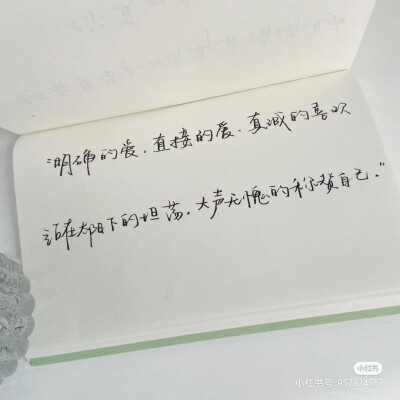 “明确的爱，直接的爱，真诚的喜欢
站在太阳下的坦荡，大声无愧的称赞自己。”
小红书
小红书号：957824517